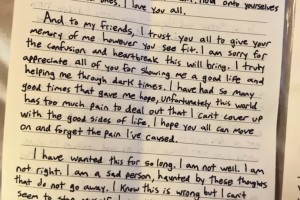 ones, I love you all.
onto yourselves
And to my friends, I trust you all to give your
memory of me however you see fit. I am sorry for
the confusion and heartbreak this will bring. I truly
appreciate all of you for showing me a good life and
helping me through dark times. I have had so many
good times that gave me hope, unfortunately this world
has too much pain to deal out that I can't cover up
with the good sides of life. I hope you all can move
on and forget the pain I've caused.
I have wanted this for so long. I am not well. I am
not right. I am a sad person, haunted by these thoughts
that do not go away. I know this is wrong but I can't
seem to stop